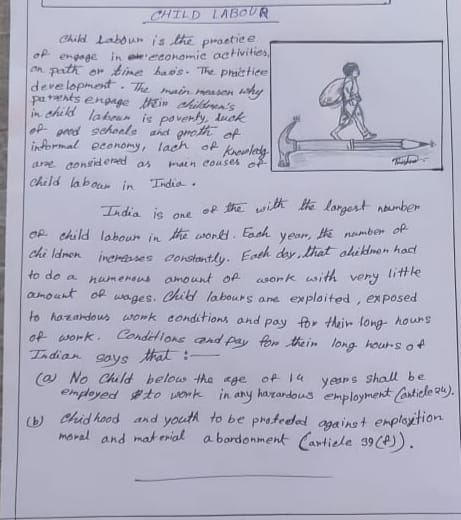 CHILD LABOUR
Child Labour is the practice
of engage in economic activities,
on path or time basis. The practice
development. The main reason why
parents engage their children's
in child labour is poverty, luck
of good schools and groth of
informal economy, lack of knowledg
are considered as main couses of
child labour in India.
India is one of the with the largest number
of child labour in the world. Each year, the number of
children increases constantly. Each day, that children had
to do a numerous amount of work with very little
amount of wages. Child labours are exploited, exposed
to hazardous work conditions and pay for their long hours
of work. Conditions and pay for their long hours of
Indian says that :—
(a) No Child below the age of 14 years shall be
employed to work in any hazardous employment (article 24).
(b) Chidhood and youth to be protected against exploxition
moral and material abordonment (article 39(f)).